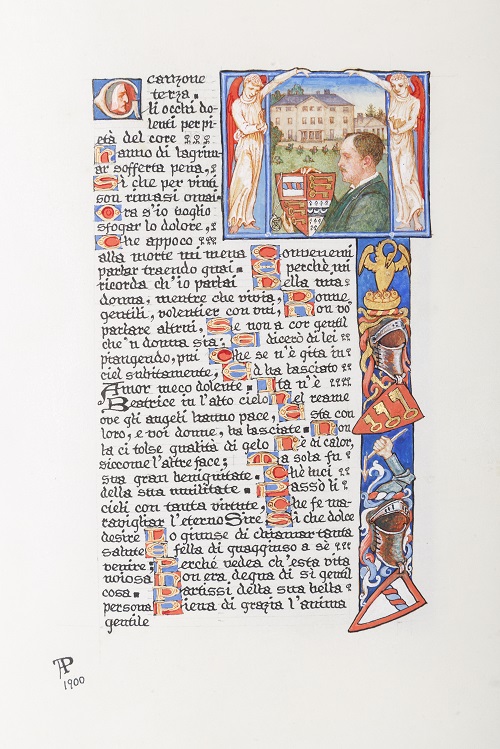 Canzone
terza.
Gli occhi do-
lenti per pi
età del core
Hanno di lagrim
ar sofferta pena,
Sì che per vinti
son rimasi omai
Ora s'io voglio
sfogar lo dolore,
Che appoco
alla morte mi mena Convenemi
parlar traendo guai. E perchè mi
ricorda ch'io parlai Della mia
donna, mentre che vivia, Donne
gentili, volentier con vui, Non vo'
parlare altrui, Se non a cor gentil
che'n donna sia: E dicerò di lei
piangendo, pui Che se n'è gita in
ciel subitamente, Ed ha lasciato
Amor meco dolente. Ita n'è
Beatrice in l'alto cielo Nel reame
ove gli angeli hanno pace, E sta con
loro, e voi donne, ha lasciate. Non
la ci tolse qualità di gelo Nè di calor,
siccome l'altre face; Ma sola fu
sua gran benignitate. Chè luci
della sua umilitate. Passò li
cieli con tanta virtute, Che fe ma-
ravigliar l'eterno Sire Sì che dolce
desire Lo giunse di chiamar tanta
salute E fella di quaggiuso a sè
venire; Perchè vedea ch'esta vita
noiosa Non era degna di sì gentil
cosa. Partissi della sua bella
persona Piena di grazia l'anima
gentile
AP
1900